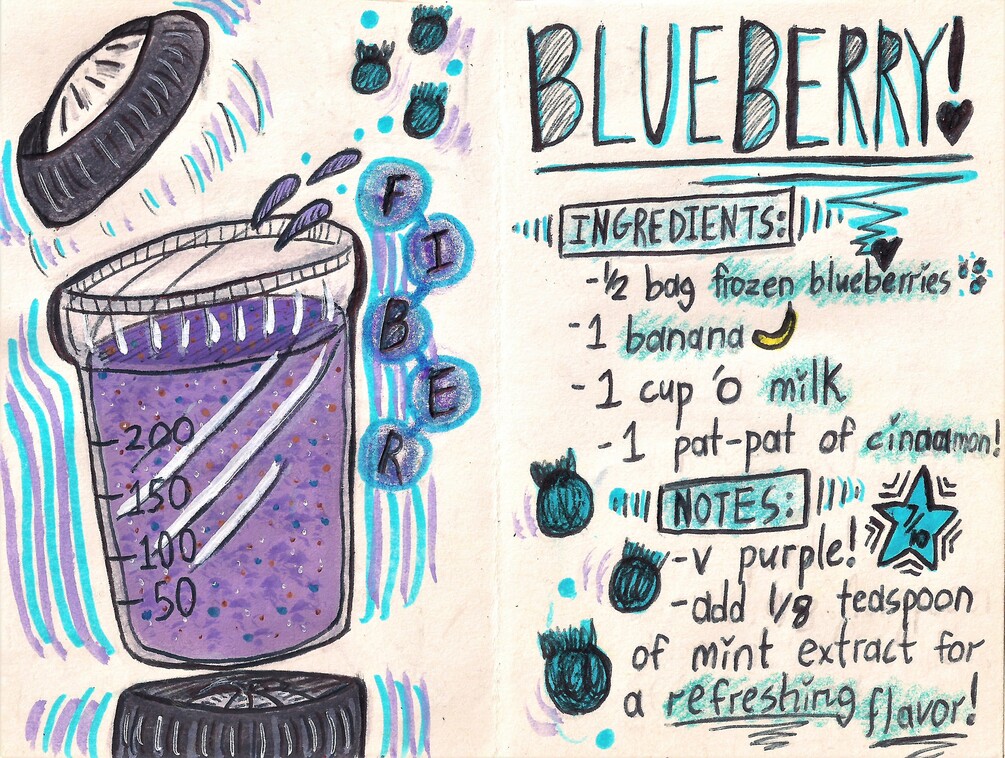 F
I
B
E
R
200
150
100
50
BLUEBERRY!
INGREDIENTS:
-1/2 bag frozen blueberries
-1 banana
-1 cup 'o milk
-1 pat-pat of cinnamon!
NOTES:
7/10
-v purple!
-add 1/8 teaspoon
of mint extract for
a refreshing flavor!